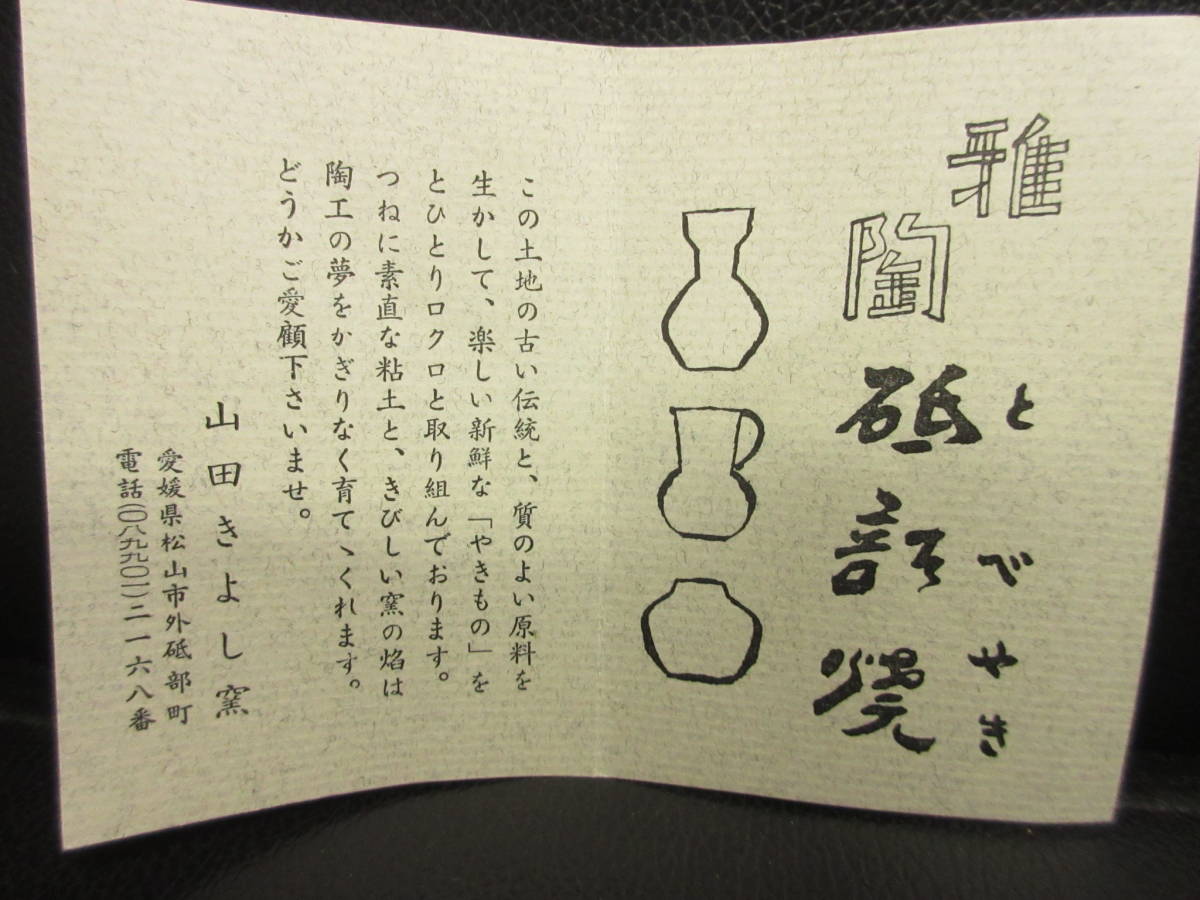 雅陶
砥部焼
とべやき
この土地の古い伝統と、質のよい原料を
生かして、楽しい新鮮な「やきもの」を
とひとりロクロと取り組んでおります。
つねに素直な粘土と、きびしい窯の焔は
陶工の夢をかぎりなく育てゝくれます。
どうかご愛顧下さいませ。
山田きよし窯
愛媛県松山市外砥部町
電話(〇八九九〇一)二一六八番